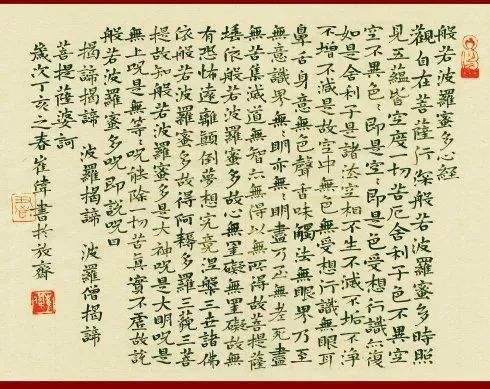 般若波羅蜜多心經
觀自在菩薩行深般若波羅蜜多時照
見五蘊皆空度一切苦厄舍利子色不異空
空不異色〻即是空〻即是色受想行識亦復
如是舍利子是諸法空相不生不滅不垢不淨
不增不減是故空中無色無受想行識無眼耳
鼻舌身意無色聲香味觸法無眼界乃至
無意識界無〻明亦無〻明盡乃至無老死盡
無苦集滅道無智亦無得以無所得故菩提薩
埵依般若波羅蜜多故心無罣礙無罣礙故無
有恐怖遠離顛倒夢想究竟涅槃三世諸佛
依般若波羅蜜多故得阿耨多羅三藐三菩
提故知般若波羅蜜多是大神咒是大明咒是
無上咒是無等〻咒能除一切苦真實不虛故說
般若波羅蜜多咒即說咒曰
揭諦揭諦 波羅揭諦 波羅僧揭諦
菩提薩婆訶
歲次丁亥之春崔偉書於放齋